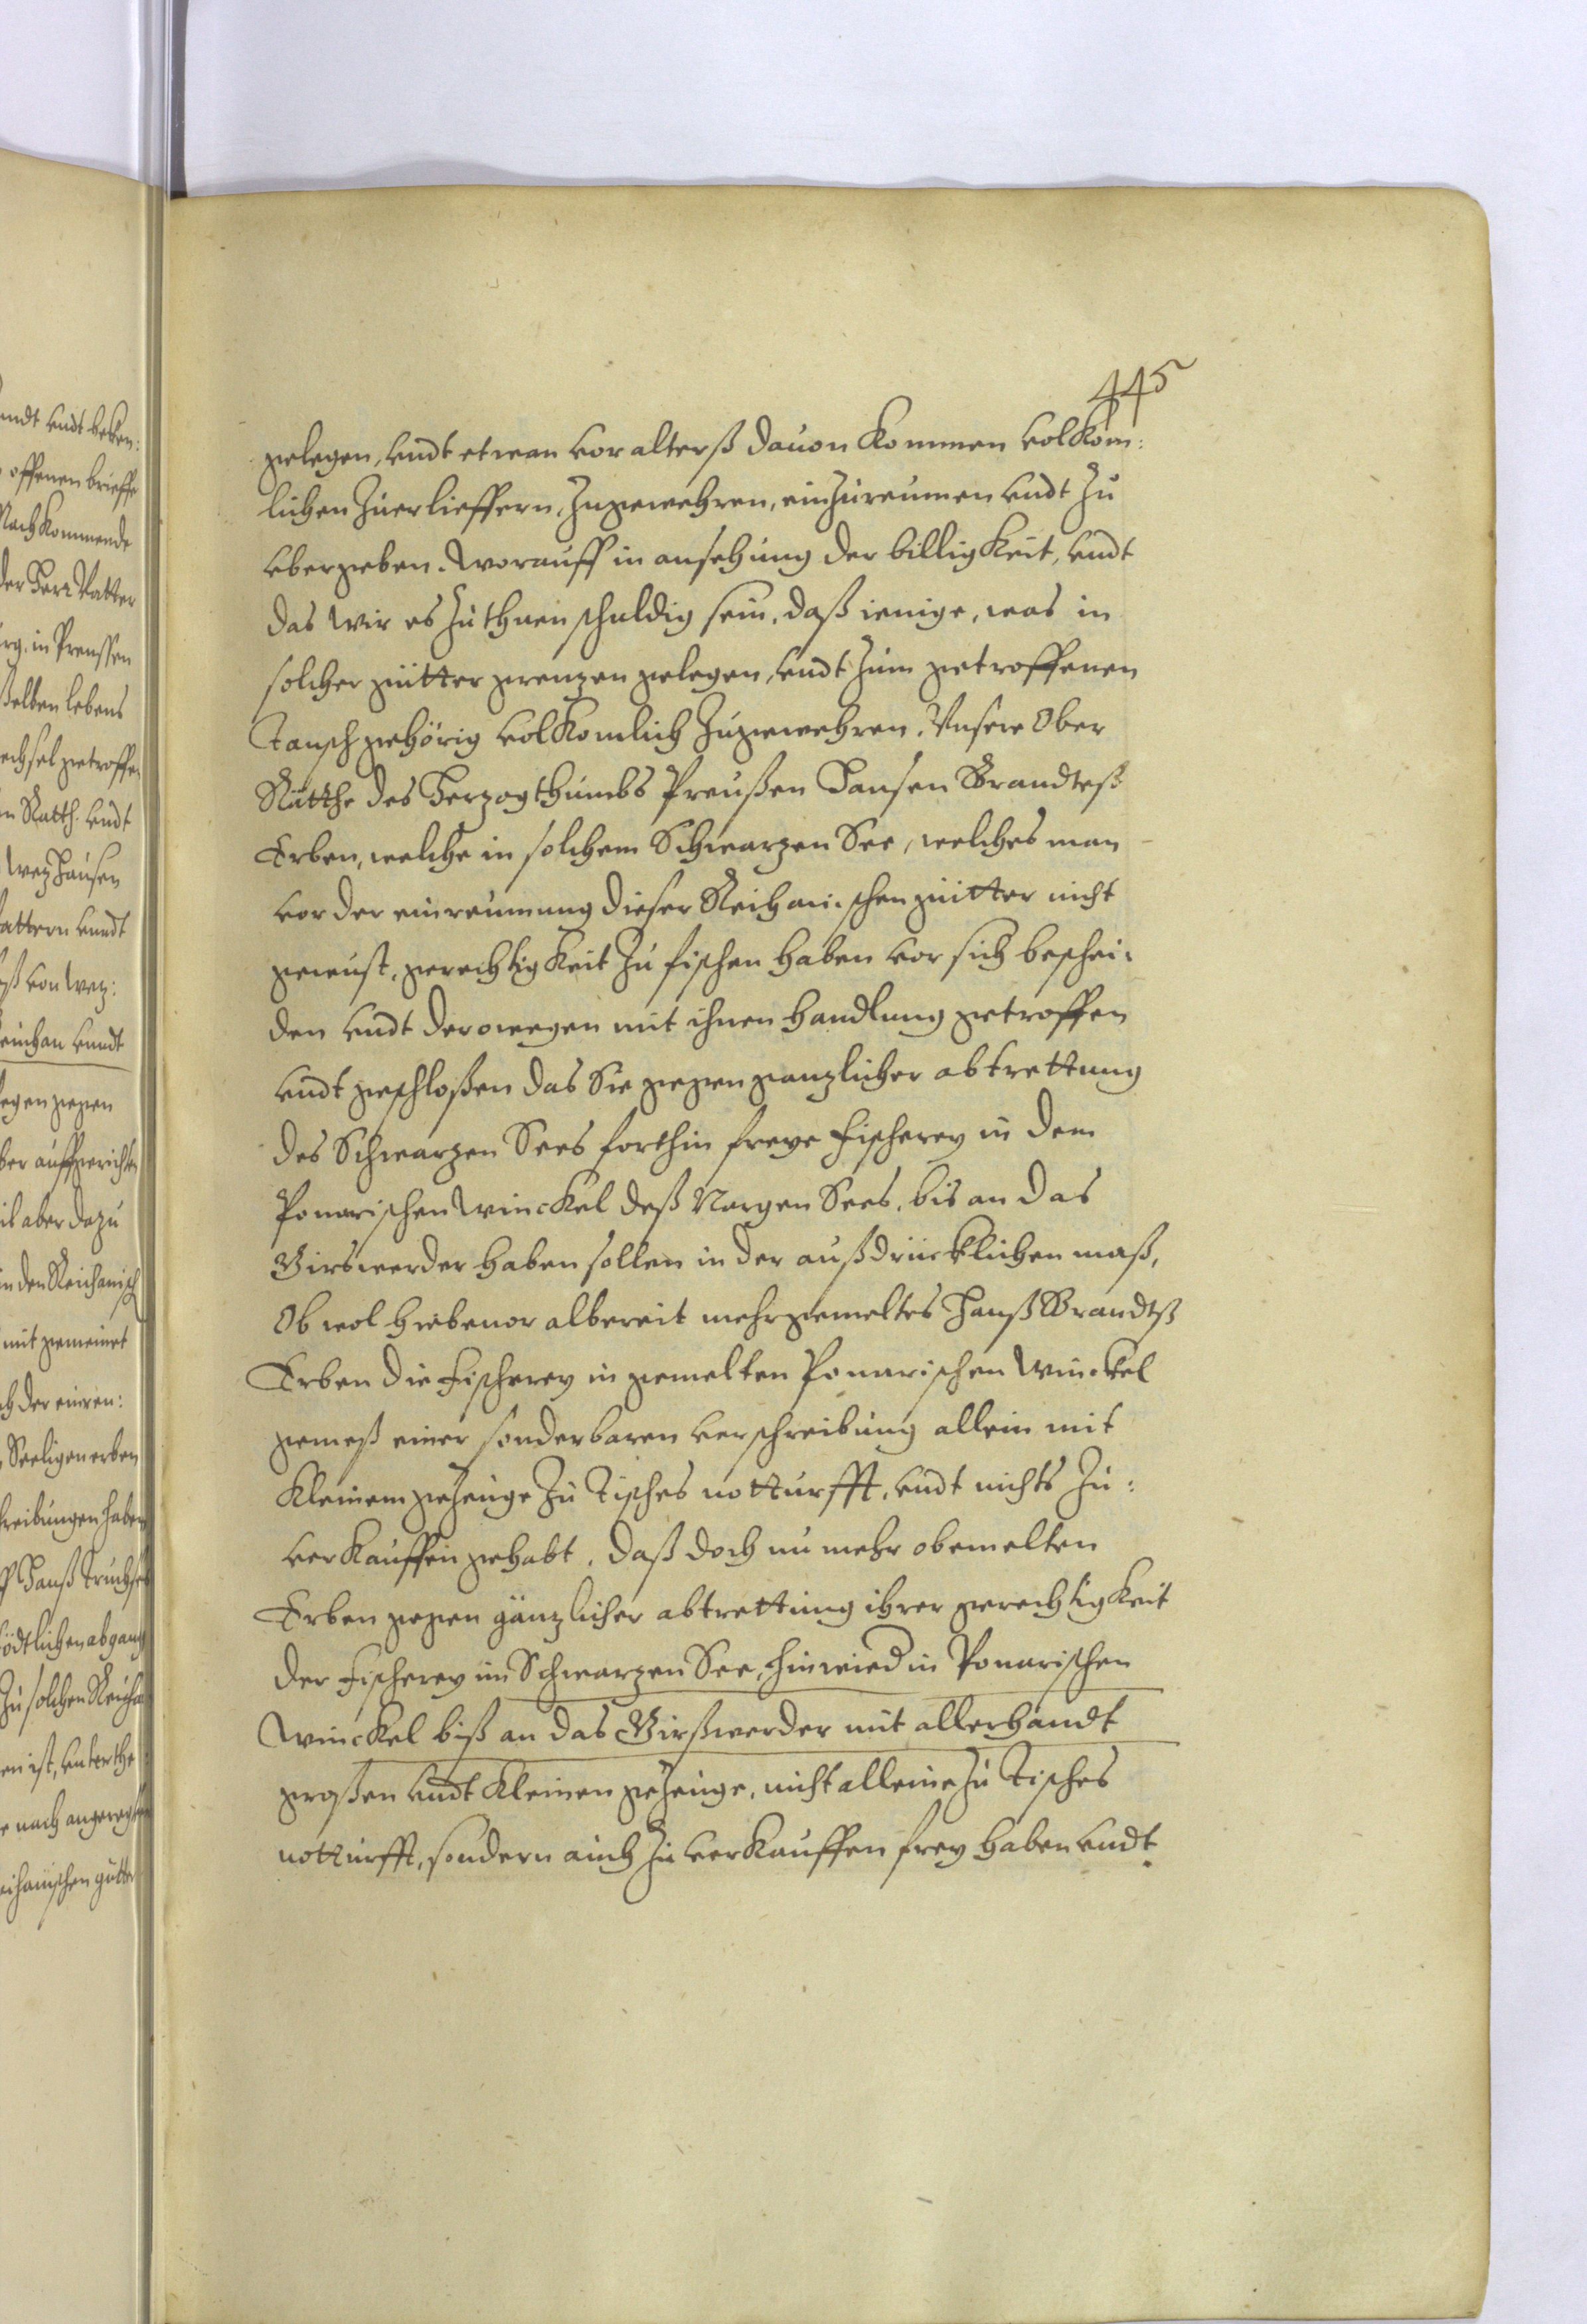 445
gelegen, vndt etwan vor alterß dauon Kommen volKom:
lichen Zuerlieffern, Zugewehren, einZureumen vndt Zu
vbergeben. Worauff in ansehung der billigKeit, vndt
das wir es Zu thuen schuldig sein, daß ienige, was in
solcher gütter grenzen gelegen, vndt Zum getroffenen
Tausch gehörig volKomlich Zugewehren. Vnsere Ober
Rätthe des Herzogthumbs Preußen Hansen Brandteß
Erben, welche in solchem Schwarzen See, welches man
vor der einreumung dieser Reichanischen gütter nicht
gewust, gerechtigKeit Zu fischen haben vor sich beschei:
den vndt derowegen mit ihnen handlung getroffen
vndt geschloßen das Sie gegen ganzlicher abtrettung
des Schwarzen Sees forthin freye fischerey in dem
Ponarischen WincKel deß Nargen Sees, bis an das
Girswerder haben sollen in der außdrücklichen maß,
Ob wol hiebenor albereit mehrgemeltes Hanß Brandtß
Erben die fischerey in gemelten Ponarischen WincKel
gemeß einer sonderbaren verschreibung allein mit
Kleinem geZeuge Zu Tisches notturfft, vndt nichts Zu:
verKauffen gehabt, daß doch nu mehr obemelten
Erben gegen gänzlicher abtrettung ihrer gerechtigKeit
der fischerey im Schwarzen See, hinwied in Ponarischen
WincKel biß an das Girßwerder mit allerhandt
großen vndt Kleinen geZeuge, nicht alleine Zu Tisches
notturfft, sondern auch Zu verKauffen frey haben vndt